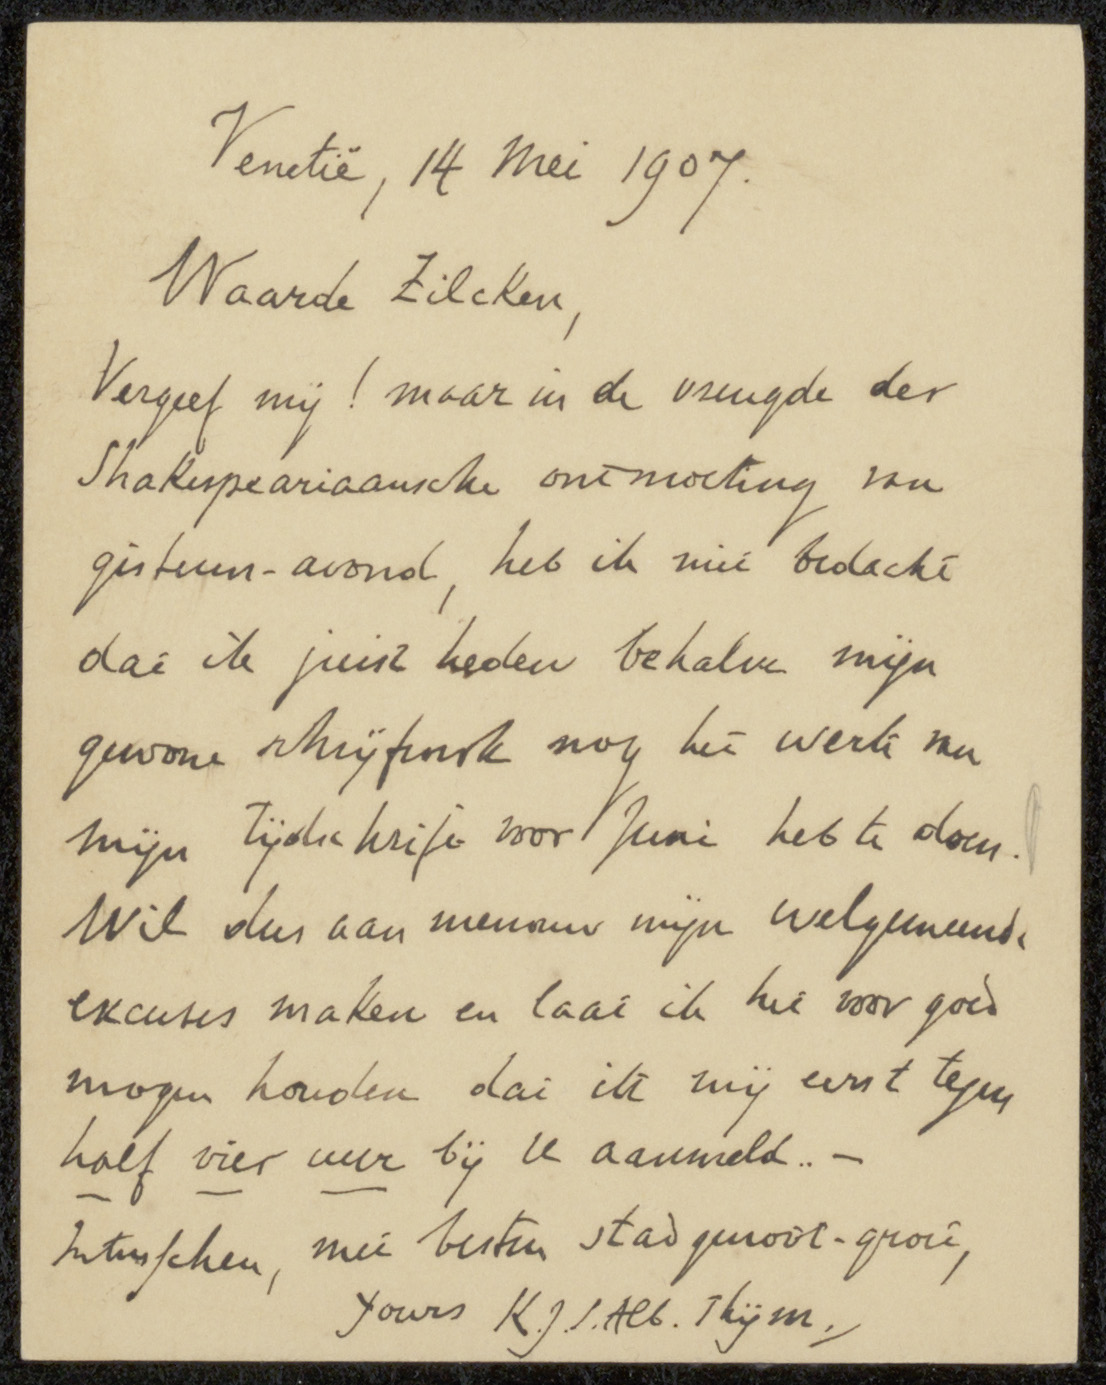 Venetië, 14 Mei 1907.
Waarde Zilcken,
Vergeef mij! maar in de vreugde der
Shakespeariaansche ontmoeting van
gisteren-avond, heb ik niet bedacht
dat ik juist heden behalve mijn
gewone schrijfwerk nog het werk van
mijn tijdschrift voor Juni heb te doen.
Wil dus aan mevrouw mijn welgemeende
excuses maken en laat ik het voor goed
mogen houden dat ik mij eerst tegen
half vier uur bij U aanmeld.. —
Intusschen, met besten stadgenoot-groet,
Yours K.J.L. Alb. Thijm.